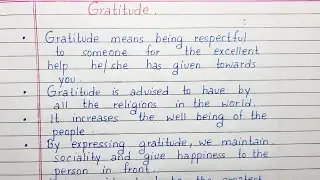 Gratitude.
• Gratitude means being respectful
to someone for the excellent
help he/she has given towards
you.
• Gratitude is advised to have by
all the religions in the world.
• It increases the well being of the
people.
• By expressing gratitude, we maintain
sociality and give happiness to the
person in front.
the greatest